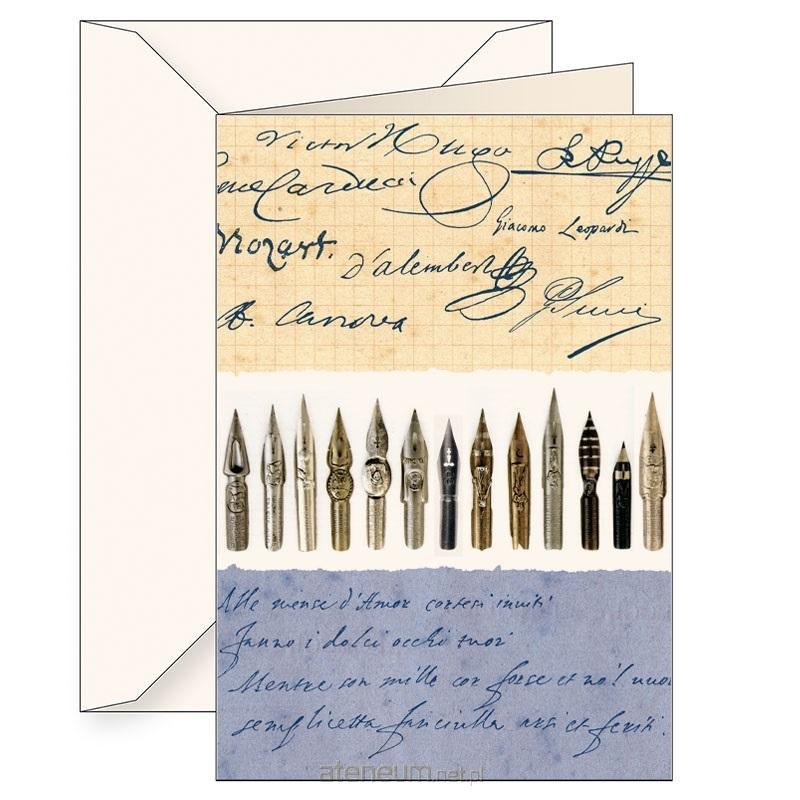 Victor Hugo
Carducci
Giacomo Leopardi
Mozart.
d'alembert
A. Canova
Alle mense d'Amor cortesi inviti
Fanno i dolci occhi tuoi
Mentre son mille cor forse et no'l vuoi
semplicetta fanciulla arsi et feriti.
ateneum.net.pl